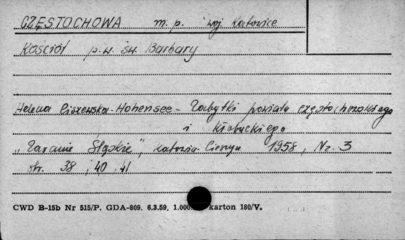 CZĘSTOCHOWA m.p. woj Katowice
Kościół p.w. św. Barbary
Helena Hohensee - Zabytki powiatu częstochowskiego
i kłobuckiego
„Zaranie Śląskie", 1958, Nr. 3
str. 38 i 40. 41
CWD B-15b Nr 515/P. GDA-809. 6.3.59, 1.000. karton 180/V.